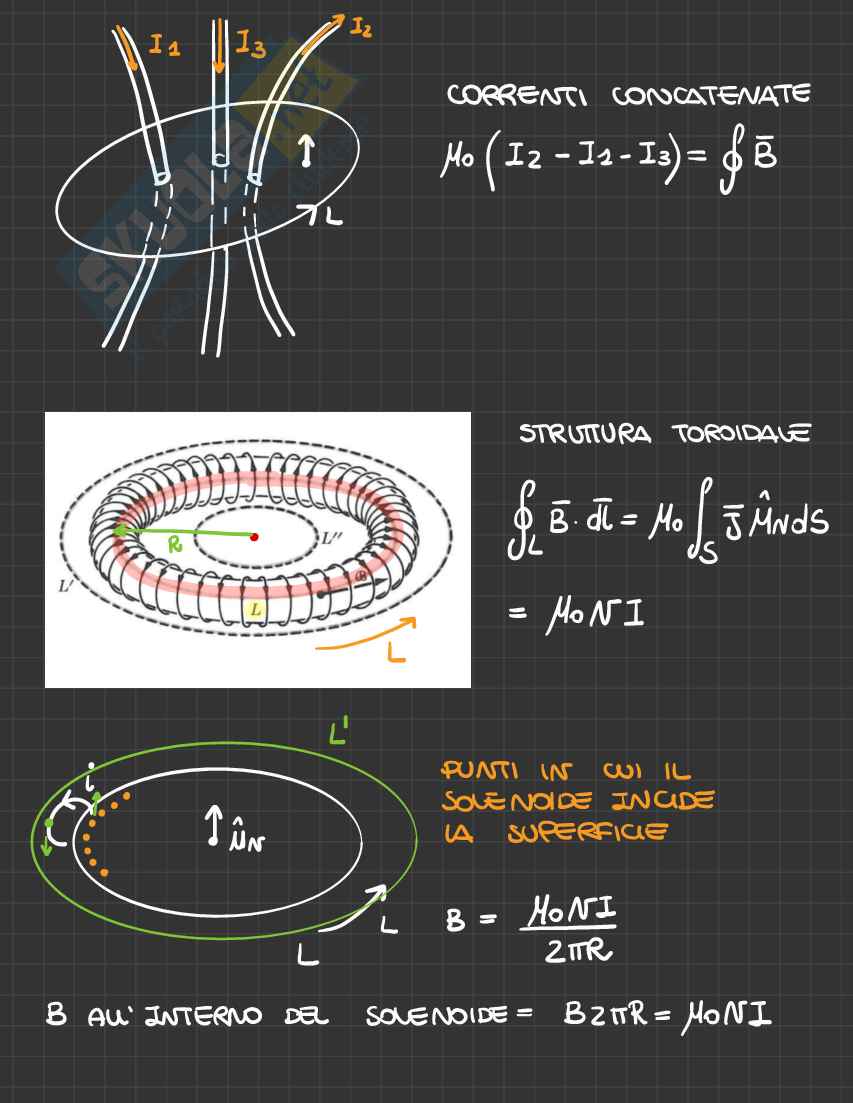 I1 I3 I2
CORRENTI CONCATENATE
μ0 (I2 - I1 - I3) = ∮ B̅
L
STRUTTURA TOROIDALE
∮L B̅ · d̅l̅ = μ0 ∫S J̅ μ̂N dS
= μ0 N I
R
L''
L'
L
B
L
L'
i
μ̂N
L
L
PUNTI IN CUI IL
SOLENOIDE INCIDE
LA SUPERFICIE
B = μ0NI / 2πR
B ALL' INTERNO DEL SOLENOIDE = B2πR = μ0NI